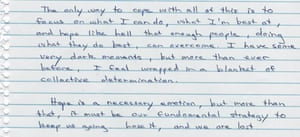 The only way to cope with all of this is to
focus on what I can do, what I'm best at,
and hope like hell that enough people, doing
what they do best, can overcome. I have some
very dark moments, but more than ever
before, I feel wrapped in a blanket of
collective determination.
Hope is a necessary emotion, but more than
that, it must be our fundamental strategy to
keep us going. Lose it, and we are lost